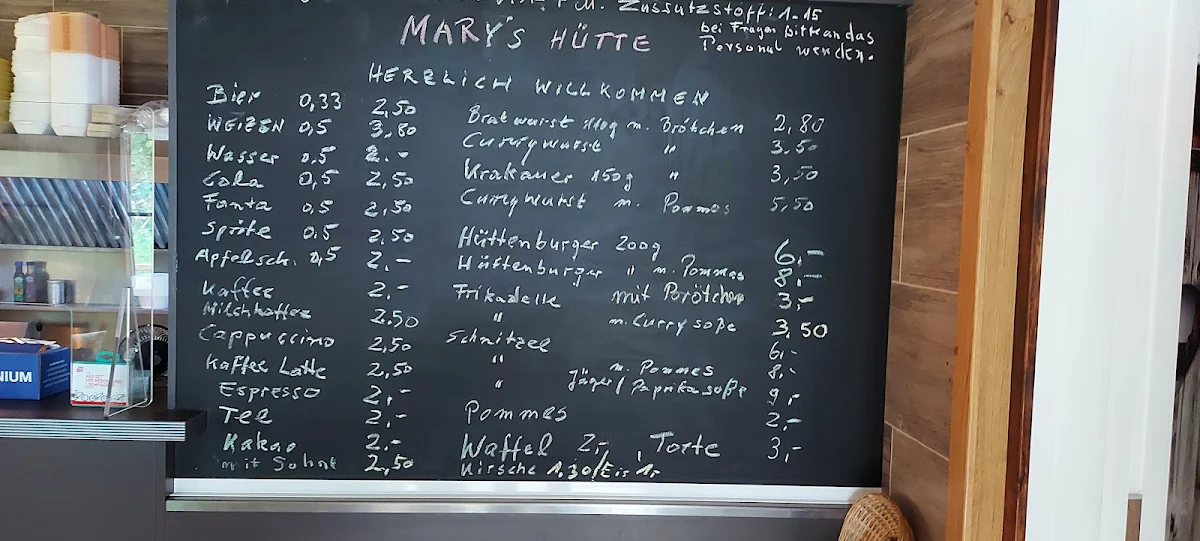 Zussutzstoff: 1-15
bei Fragen bitte an das
Personal wenden.
MARY'S HÜTTE
HERZLICH WILLKOMMEN
Bier 0,33 2,50
WEIZEN 0,5 3,80
Wasser 0,5 2.-
Cola 0,5 2,50
Fanta 0,5 2,50
Sprite 0,5 2,50
Apfelsch. 0,5 2,-
Kaffee 2.-
Milchkaffee 2.50
Cappuccino 2,50
Kaffee Latte 2,50
Espresso 2,-
Tee 2.-
Kakao 2.-
mit Sahne 2,50
Bratwurst 110g m. Brötchen 2,80
Currywurst " 3.50
Krakauer 150g " 3,50
Currywurst m. Pommes 5,50
Hüttenburger 200g 6,-
Hüttenburger " m. Pommes 8,-
Frikadelle mit Brötchen 3,-
" m. Currysoße 3,50
Schnitzel 6,-
" m. Pommes 8,-
" Jäger/Paprikasoße 9,-
Pommes 2,-
Waffel 2,-, Torte 3,-
Kirsche 1,30/Eis 1,-
NIUM